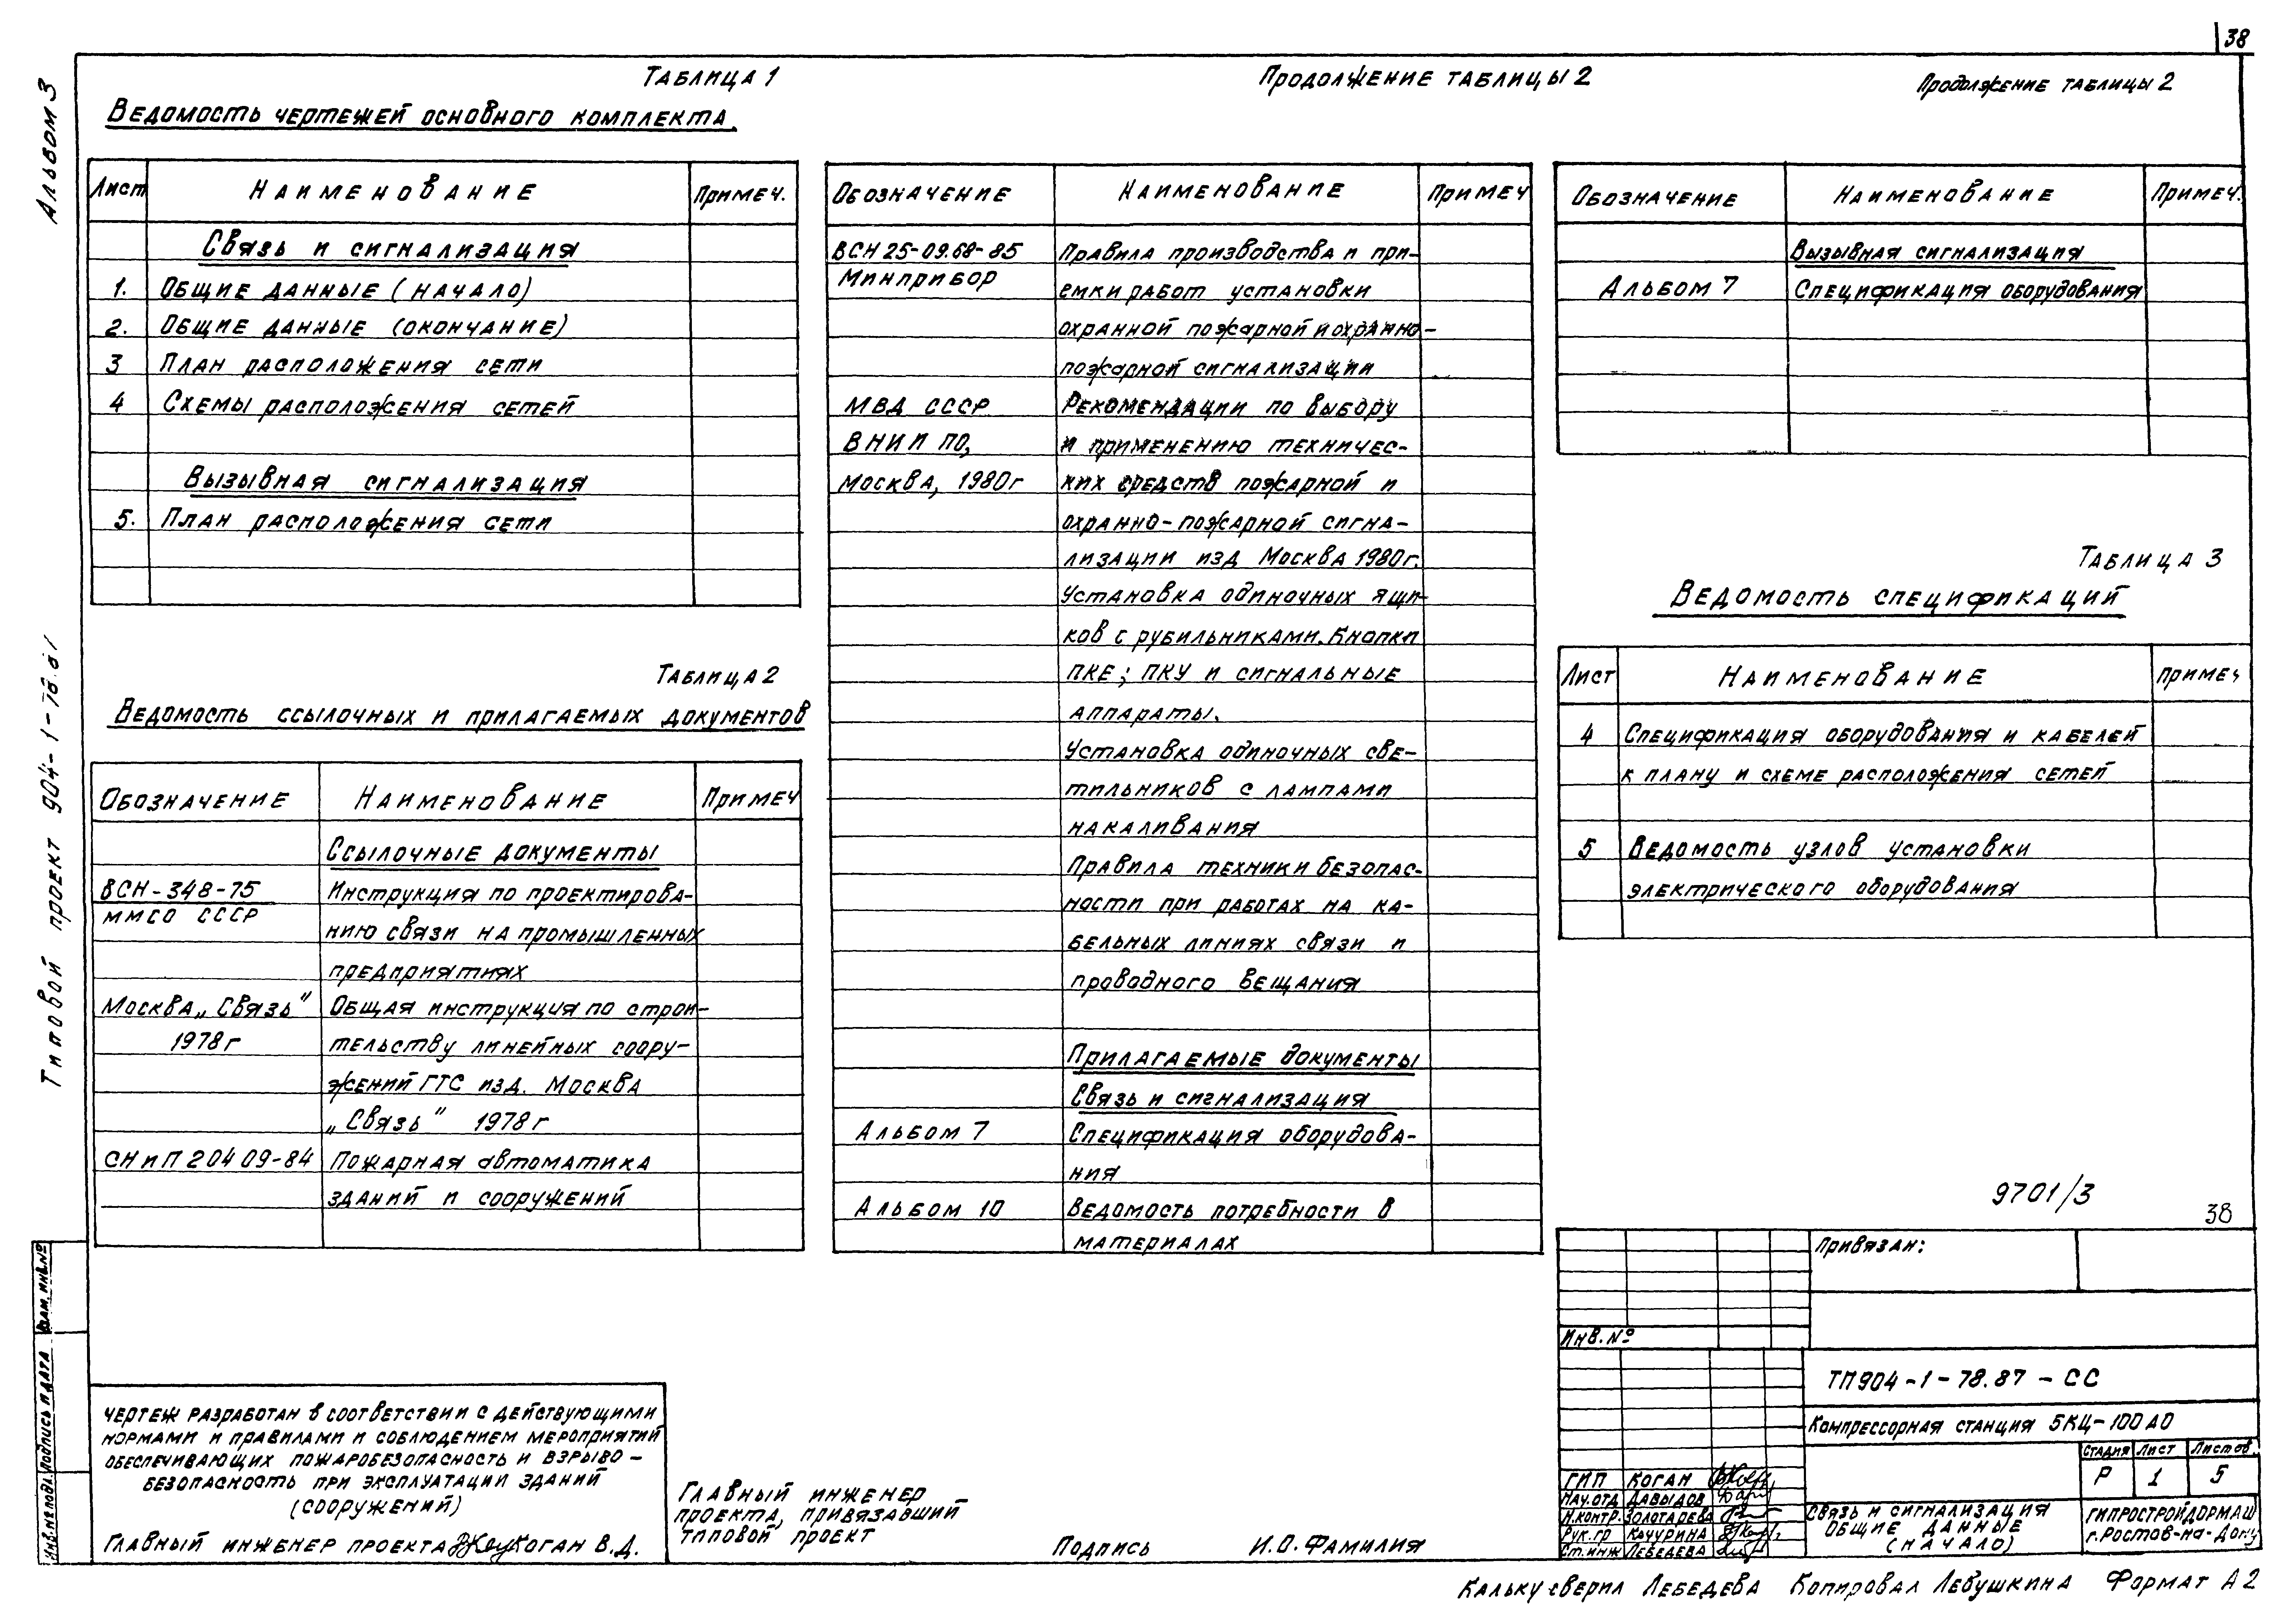 38
Альбом 3
Типовой проект 904-1-78.87
Таблица 1
Ведомость чертежей основного комплекта.
Лист Наименование Примеч.
Связь и сигнализация
1. Общие данные (начало)
2. Общие данные (окончание)
3 План расположения сети
4 Схемы расположения сетей
Вызывная сигнализация
5. План расположения сети
Таблица 2
Ведомость ссылочных и прилагаемых документов
Обозначение Наименование Примеч
Ссылочные документы
ВСН-348-75 Инструкция по проектирова-
ММСО СССР
нию связи на промышленных
предприятиях
Москва „Связь" Общая инструкция по строи-
1978г тельству линейных соору-
жений ГТС изд. Москва
„Связь" 1978г
СНиП 204 09-84 Пожарная автоматика
зданий и сооружений
Продолжение таблицы 2
Обозначение Наименование Примеч
ВСН 25-09.68-85 Правила производства и при-
Минприбор емки работ установки
охранной пожарной и охранно-
пожарной сигнализации
МВД СССР Рекомендации по выбору
ВНИИПО, и применению техничес-
Москва, 1980г ких средств пожарной и
охранно-пожарной сигна-
лизации изд Москва 1980г.
Установка одиночных ящи-
ков с рубильниками. Кнопки
ПКЕ; ПКУ и сигнальные
аппараты.
Установка одиночных све-
тильников с лампами
накаливания
Правила техники безопас-
ности при работах на ка-
бельных линиях связи и
проводного вещания
Прилагаемые документы
Связь и сигнализация
Альбом 7 Спецификация оборудова-
ния
Альбом 10 Ведомость потребности в
материалах
Продолжение таблицы 2
Обозначение Наименование Примеч.
Вызывная сигнализация
Альбом 7 Спецификация оборудования
Таблица 3
Ведомость спецификаций
Лист Наименование Примеч
4 Спецификация оборудования и кабелей
к плану и схеме расположения сетей
5 Ведомость узлов установки
электрического оборудования
9701/3
38
Привязан:
Инв. №
ТП904-1-78.87-СС
Компрессорная станция 5КЦ-100А0
Стадия Лист Листов
Р 1 5
ГИП Коган
Нач.отд Давыдов
Н.контр. Золотарева
Рук.гр Качурина
Ст.инж Лебедева
Связь и сигнализация
Общие данные
(начало)
ГИПРОСТРОЙДОРМАШ
г.Ростов-на-Дону
Чертеж разработан в соответствии с действующими
нормами и правилами и соблюдением мероприятий
обеспечивающих пожаробезопасность и взрыво-
безопасность при эксплуатации зданий
(сооружений)
Главный инженер проекта Коган В.Д.
Главный инженер
проекта, привязавший
типовой проект Подпись И.О.Фамилия
Инв.№ подл. Подпись и дата Взам. инв.№
Кальку сверил Лебедева Копировал Левушкина Формат А2